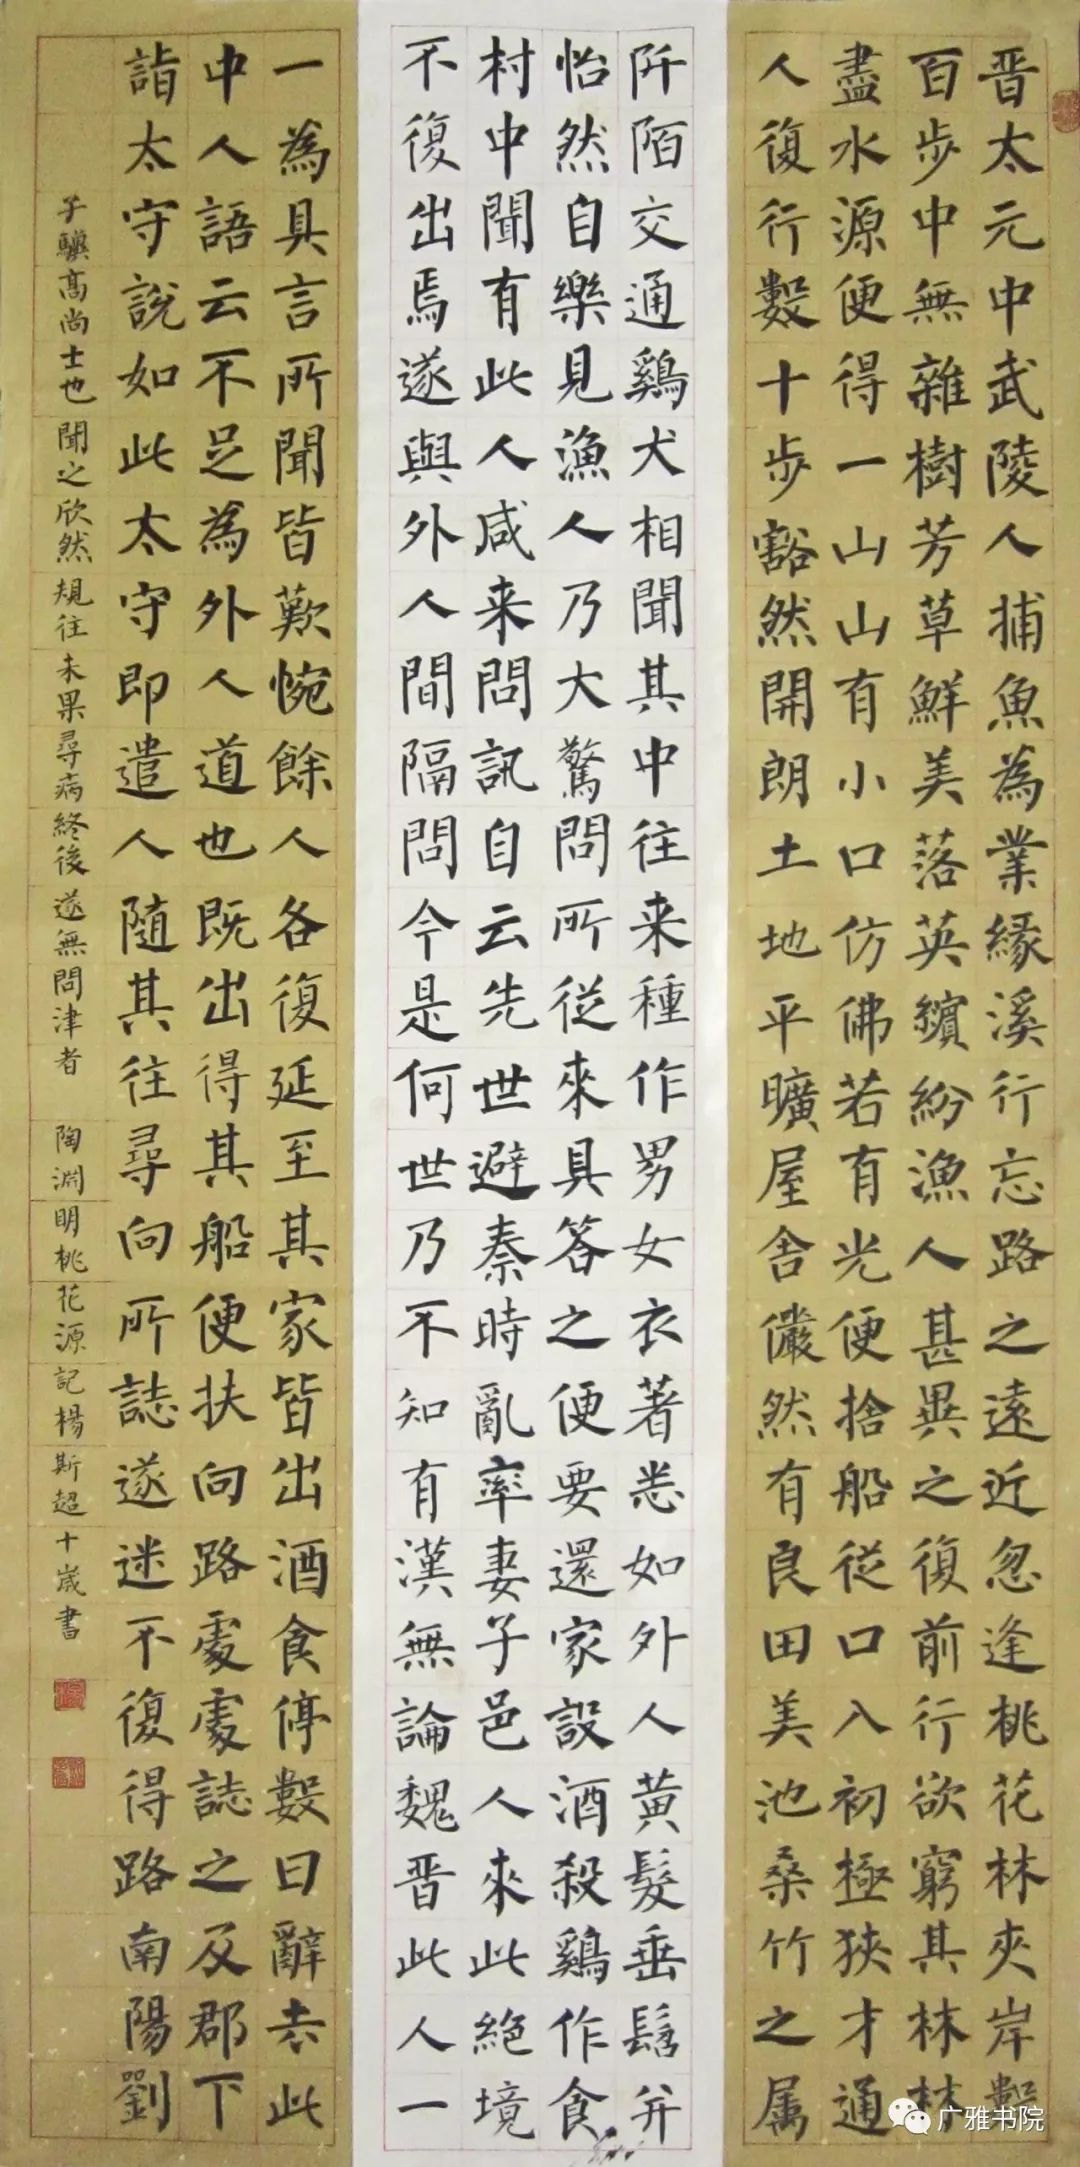 晋太元中武陵人捕魚為業緣溪行忘路之遠近忽逢桃花林夾岸數
百步中無雜樹芳草鮮美落英繽紛漁人甚異之復前行欲窮其林林
盡水源便得一山山有小口仿佛若有光便捨船從口入初極狹才通
人復行數十步豁然開朗土地平曠屋舍儼然有良田美池桑竹之属
阡陌交通鷄犬相聞其中往来種作男女衣著悉如外人黃髮垂髫并
怡然自樂見漁人乃大驚問所從來具答之便要還家設酒殺鷄作食
村中聞有此人咸来問訊自云先世避秦時亂率妻子邑人來此絕境
不復出焉遂與外人間隔問今是何世乃不知有漢無論魏晋此人一
一為具言所聞皆歎惋餘人各復延至其家皆出酒食停數日辭去此
中人語云不足為外人道也既出得其船便扶向路處處誌之及郡下
詣太守說如此太守即遣人隨其往尋向所誌遂迷不復得路南陽劉
子驥高尚士也聞之欣然規往未果尋病終後遂無問津者 陶淵明桃花源記楊斯超十歲書
广雅书院